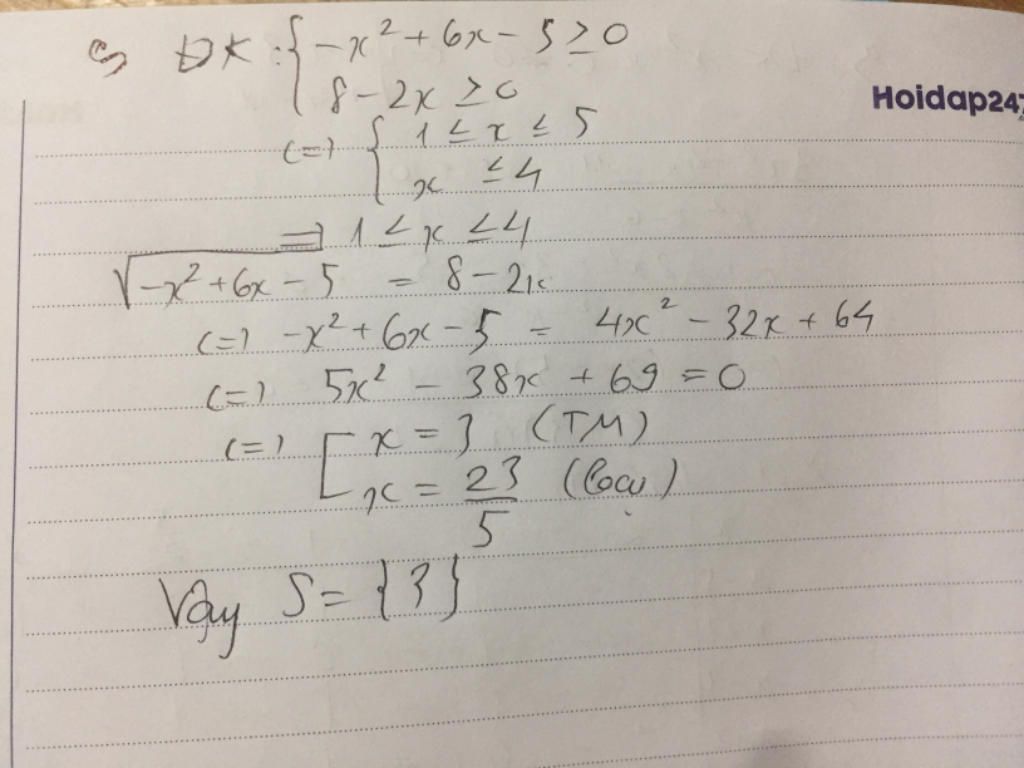 c) ĐK: { -x² + 6x - 5 ≥ 0
8 - 2x ≥ 0
Hoidap247
(=) { 1 ≤ x ≤ 5
x ≤ 4
=) 1 ≤ x ≤ 4
√(-x² + 6x - 5) = 8 - 2x
(=) -x² + 6x - 5 = 4x² - 32x + 64
(=) 5x² - 38x + 69 = 0
(=) [ x = 3 (TM)
x = 23/5 (loại)
Vậy S = {3}